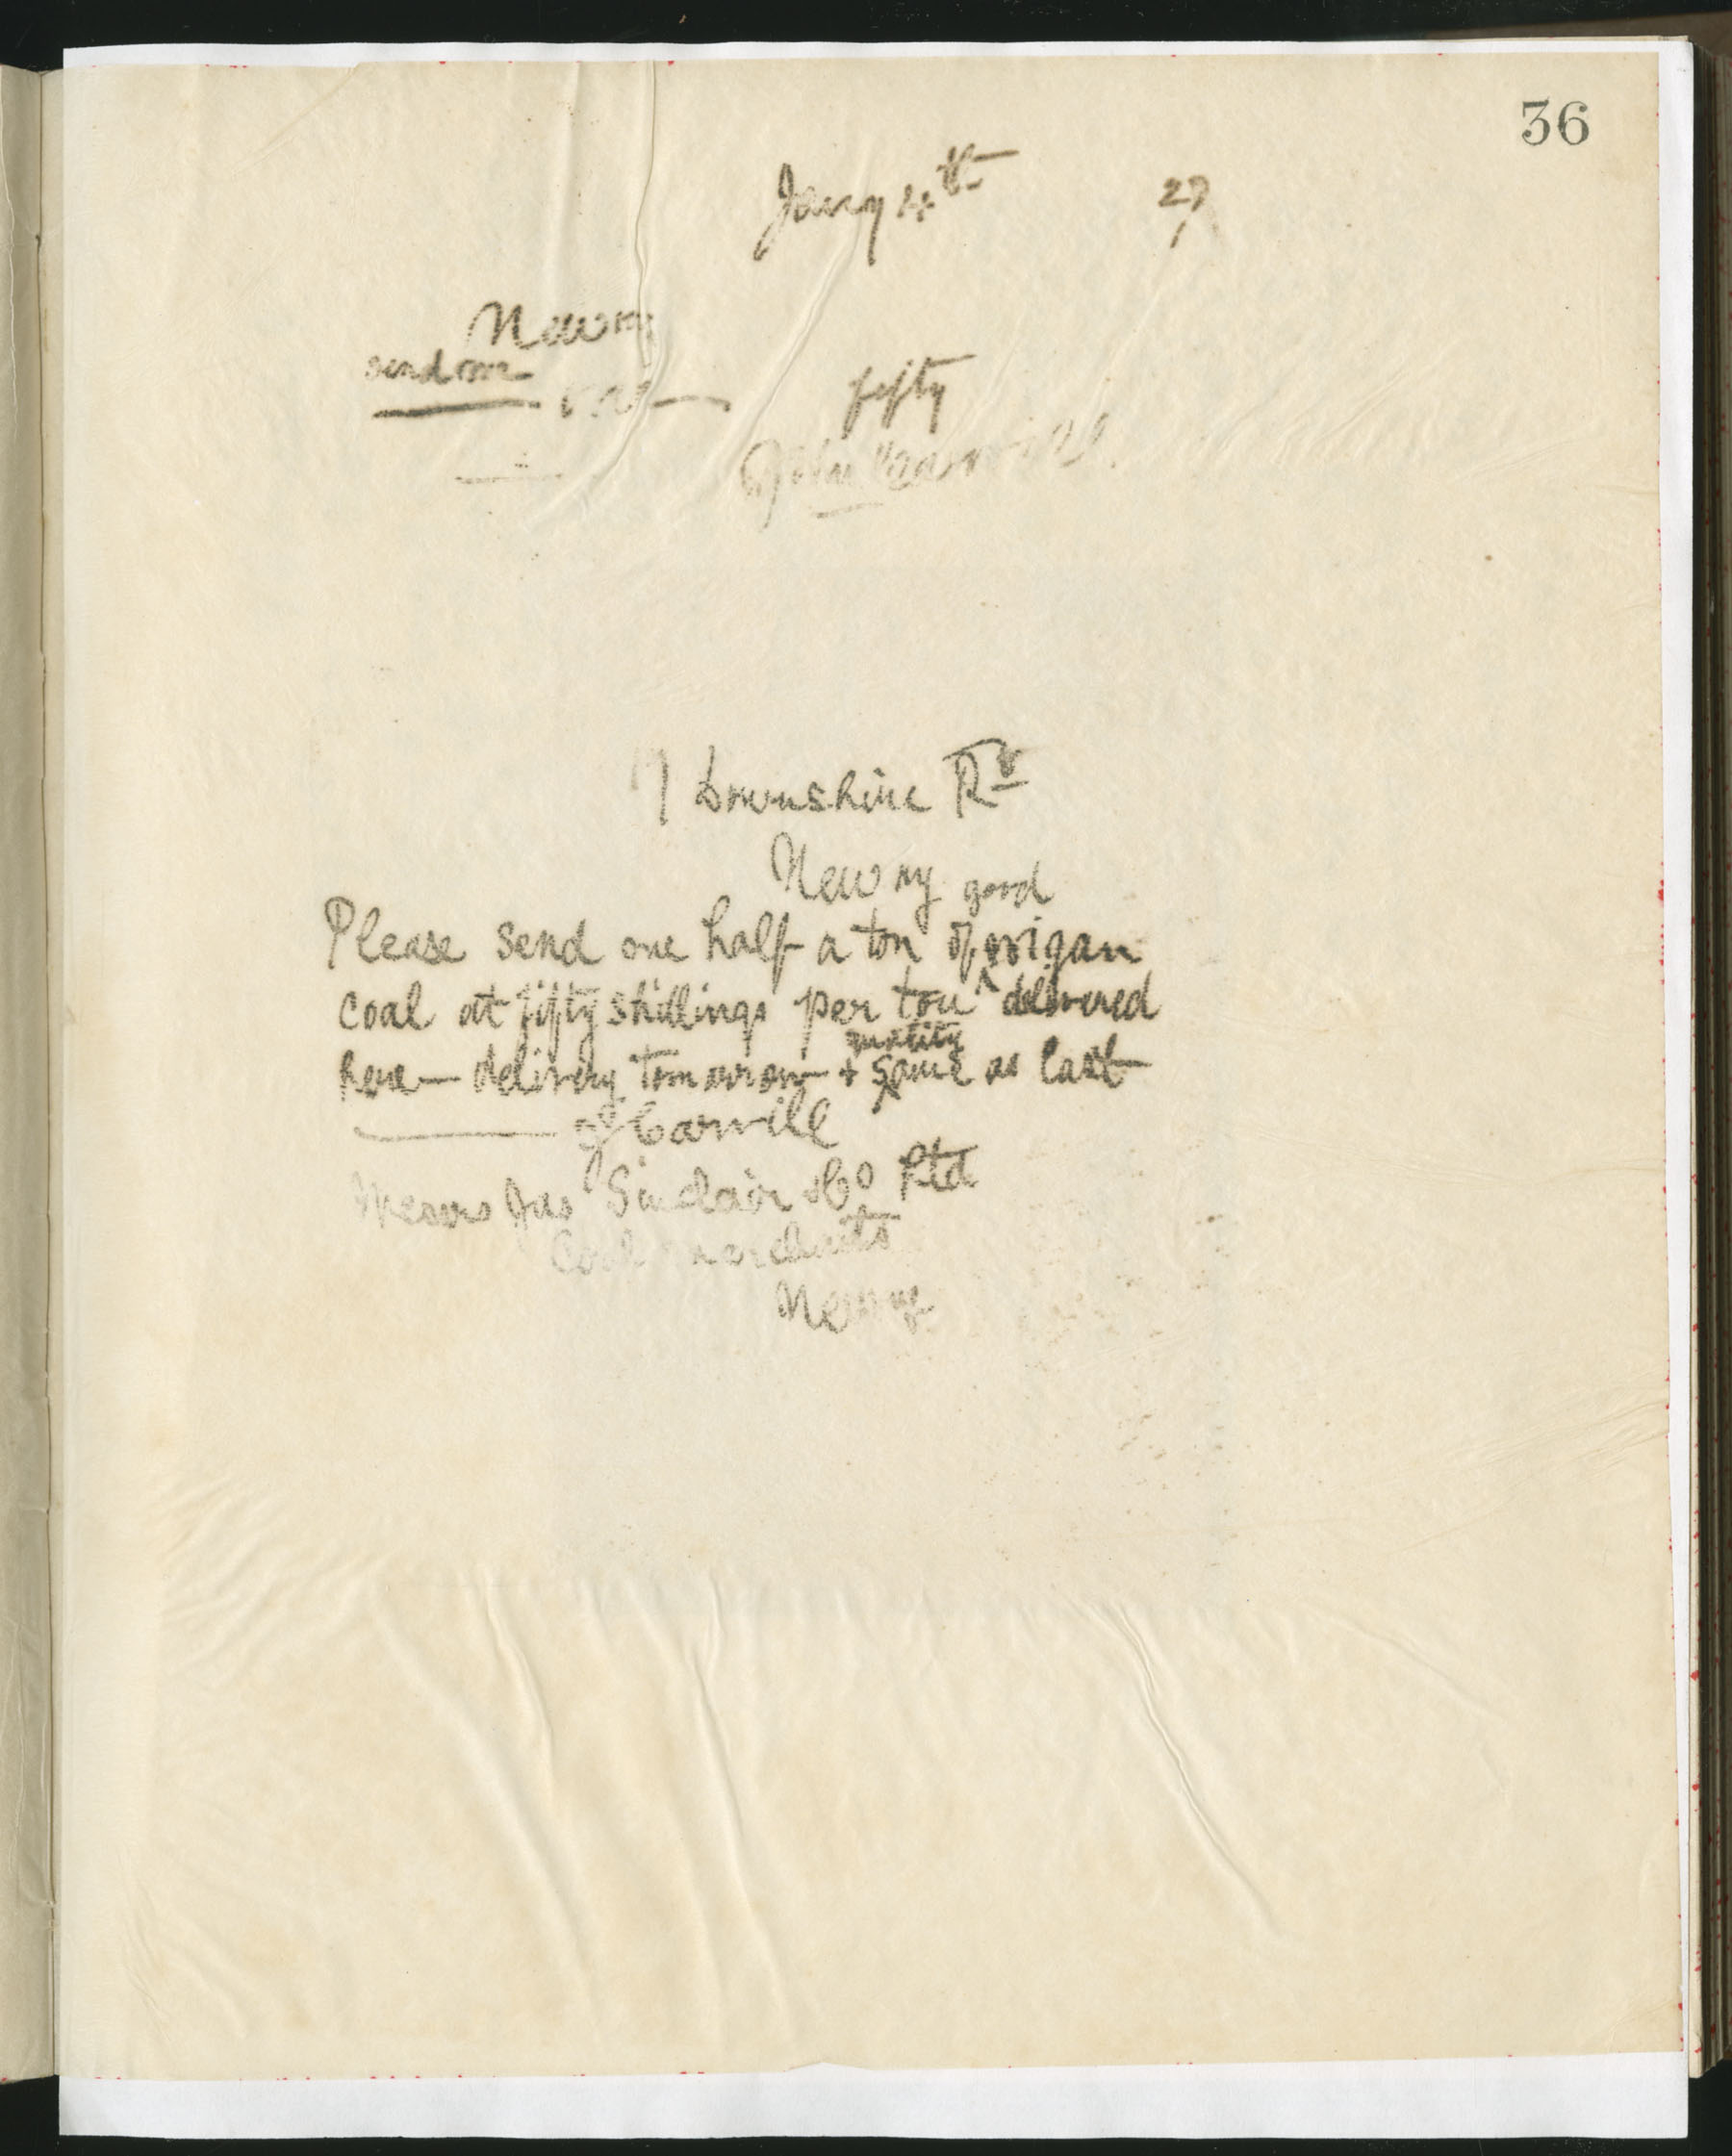 36
Jany 4th 27
Newry
send one
fifty
John
7 Downshire Rd
Newry good
Please send one half a ton of wigan
coal at fifty shillings per ton ^ delivered
quality
here — delivery tomorrow + same as last
J Carvill
Messrs Jas Sinclair & Co Ltd
Coal merchants
Newry